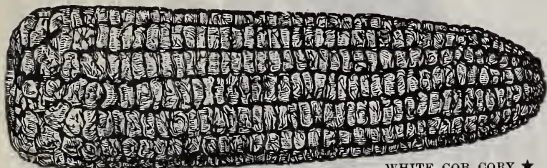 WHITE COB CORY ★